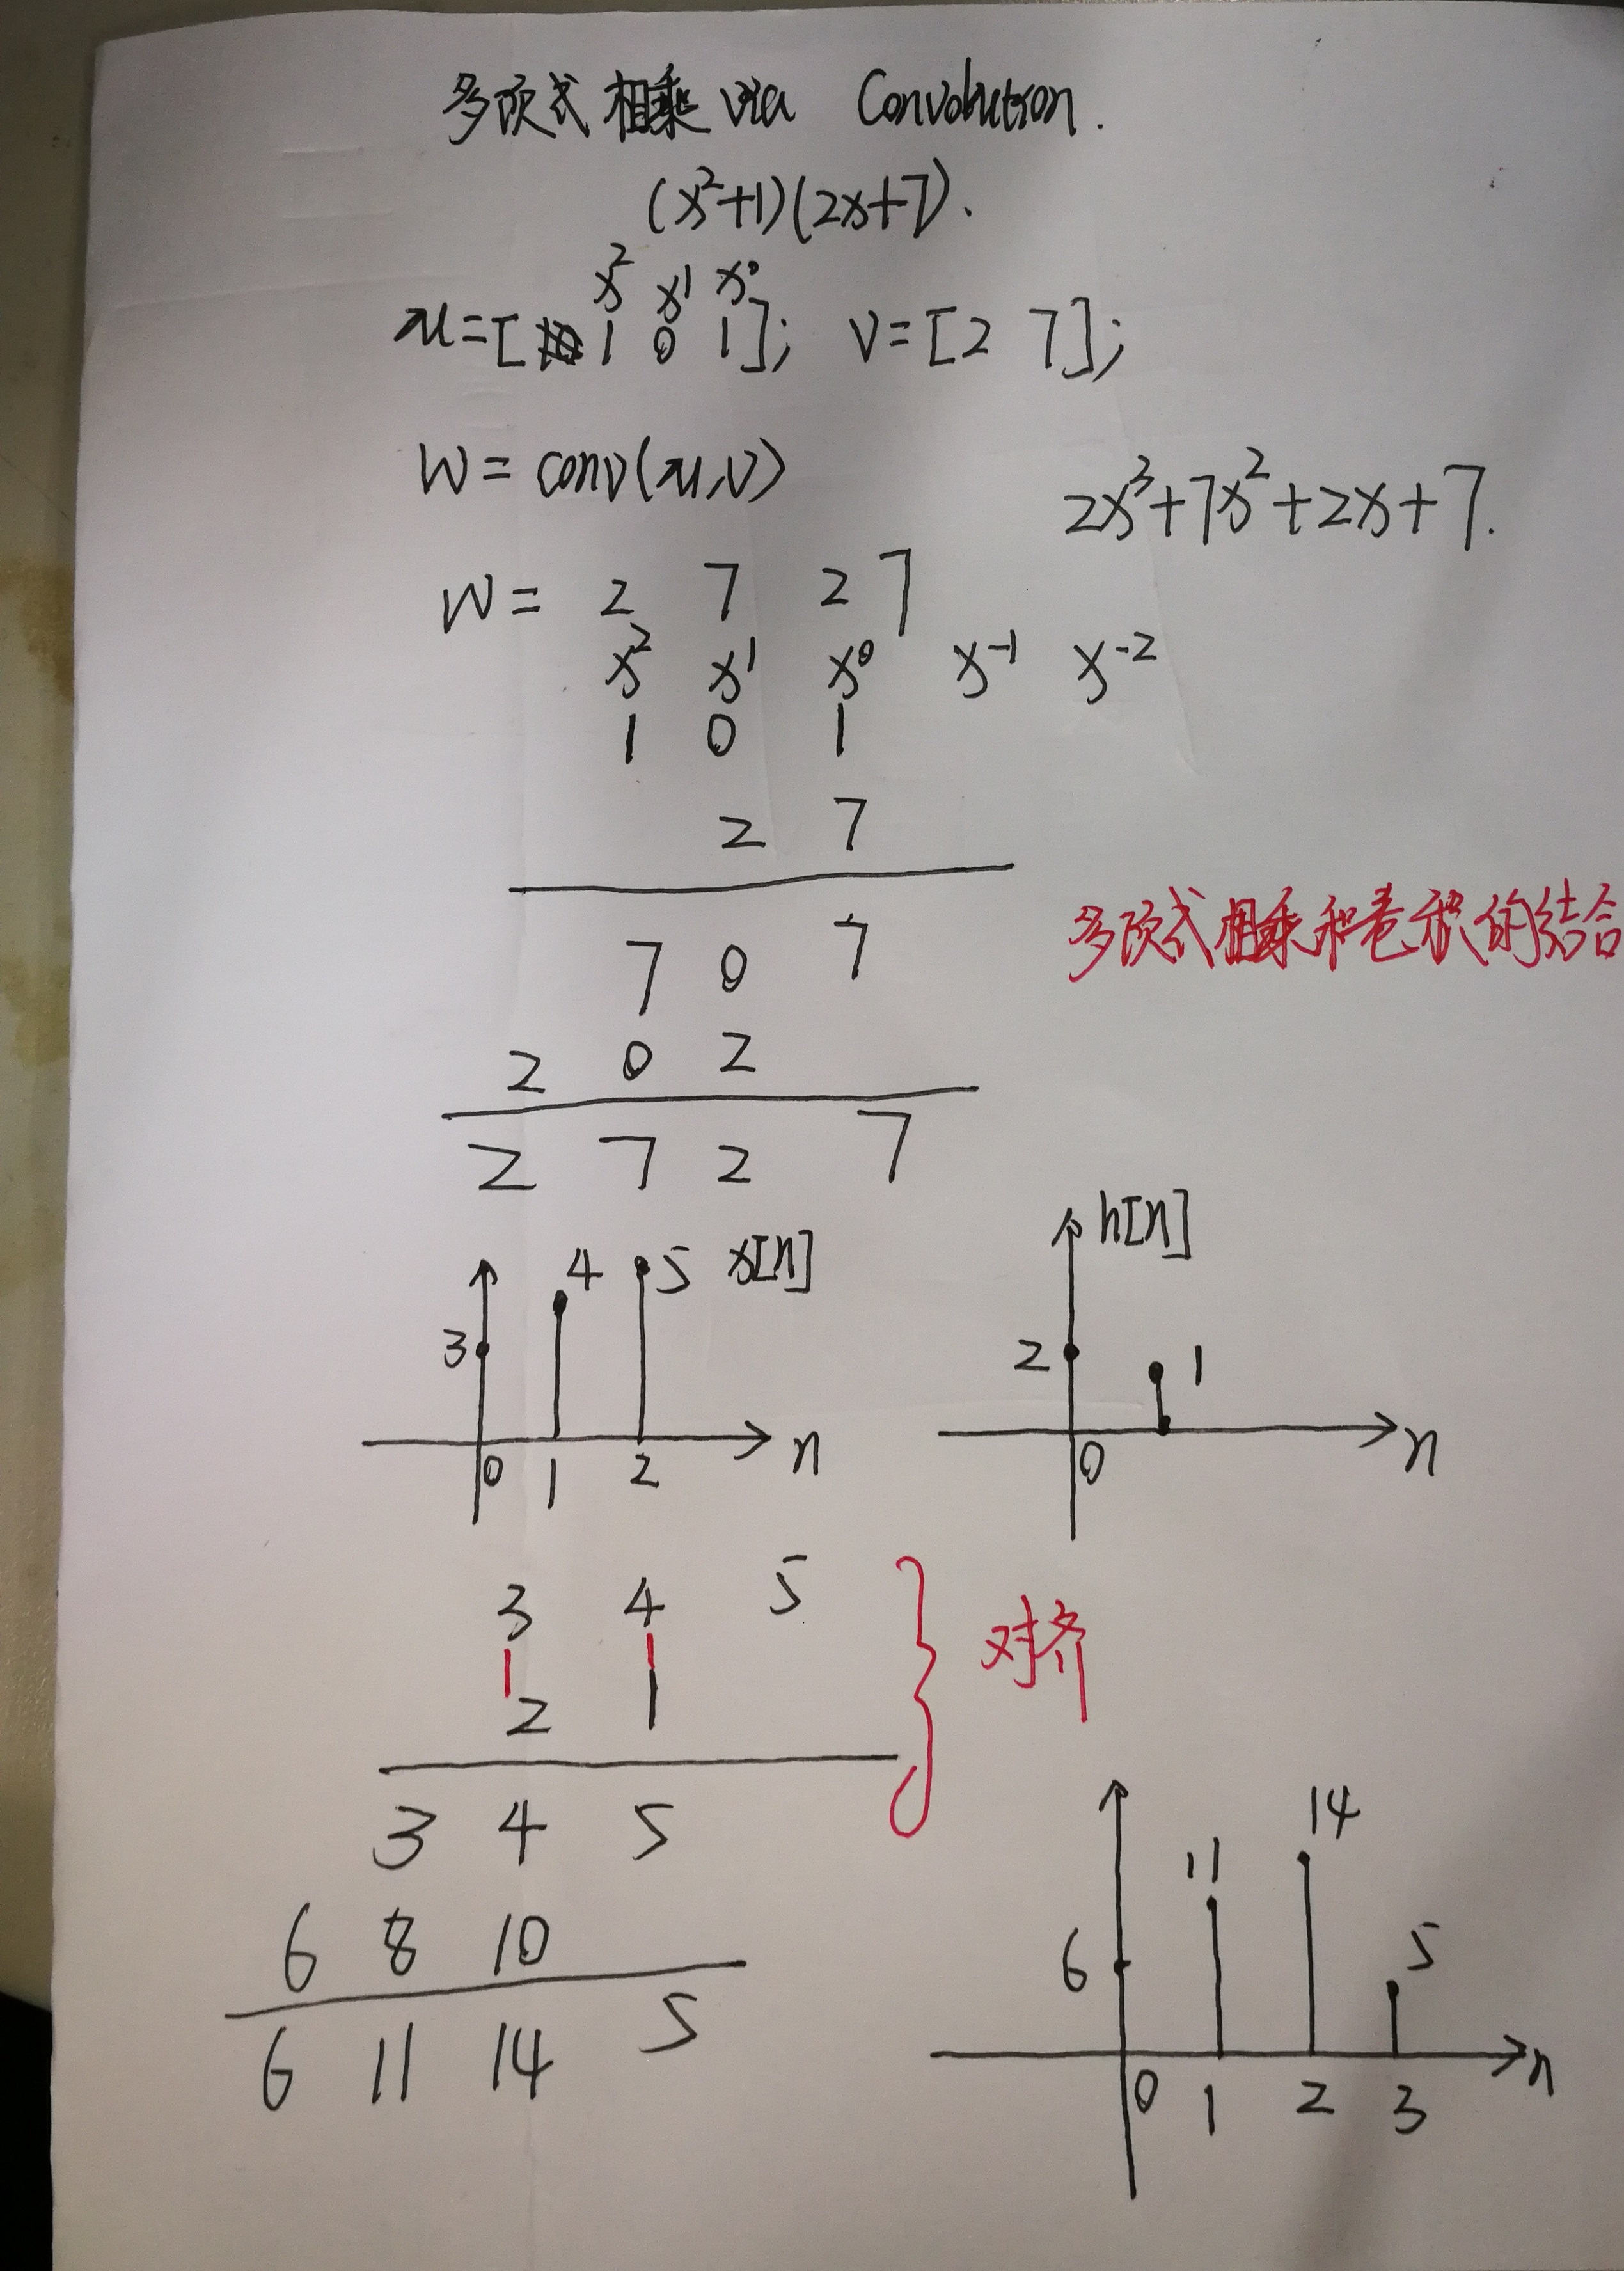 多项式相乘 via Convolution.
(x²+1)(2x+7).
x² x¹ x⁰
u=[ 1 0 1]; v=[2 7];
w = conv(u,v)
2x³+7x²+2x+7.
w = 2 7 2 7
x² x¹ x⁰ x⁻¹ x⁻²
1 0 1
2 7
7 0 7
多项式相乘和卷积的结合
2 0 2
2 7 2 7
h[n]
4 5 x[n]
3
2 1
0 1 2 n
0 n
3 4 5
对齐
2 1
3 4 5
14
11
6 8 10
6 5
6 11 14 5
0 1 2 3 n